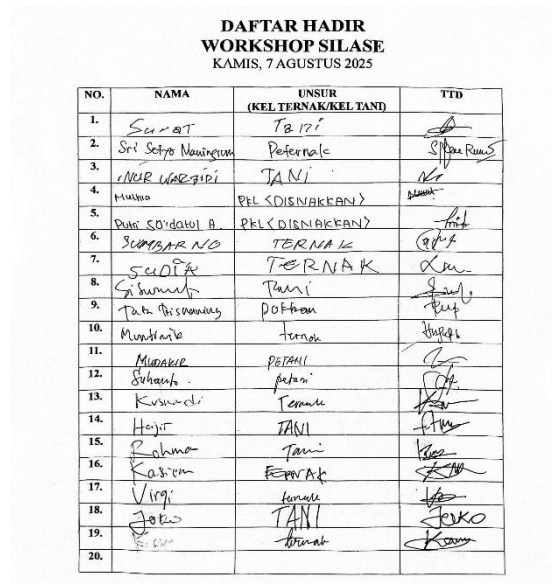 DAFTAR HADIR
WORKSHOP SILASE
KAMIS, 7 AGUSTUS 2025
NO. NAMA UNSUR (KEL TERNAK/KEL TANI) TTD
1. Surat Tani
2. Sri Setyo Naningrum Peternak
3. NUR WARZIDI TANI
4. Muthia PKL <DISNAKKAN>
5. Putri Sa'idatul A. PKL <DISNAKKAN>
6. SUMBARNO TERNAK
7. SUDIR TERNAK
8. Tani
9. Tata
10. ternak
11. MUDAKIR PETANI
12. Suhanto. petani
13. Kuswadi Ternak
14. Hajir TANI
15. Rohma Tani
16. Kasiem TERNAK
17. Virgi ternak
18. Joko TANI JOKO
19. ternak
20.